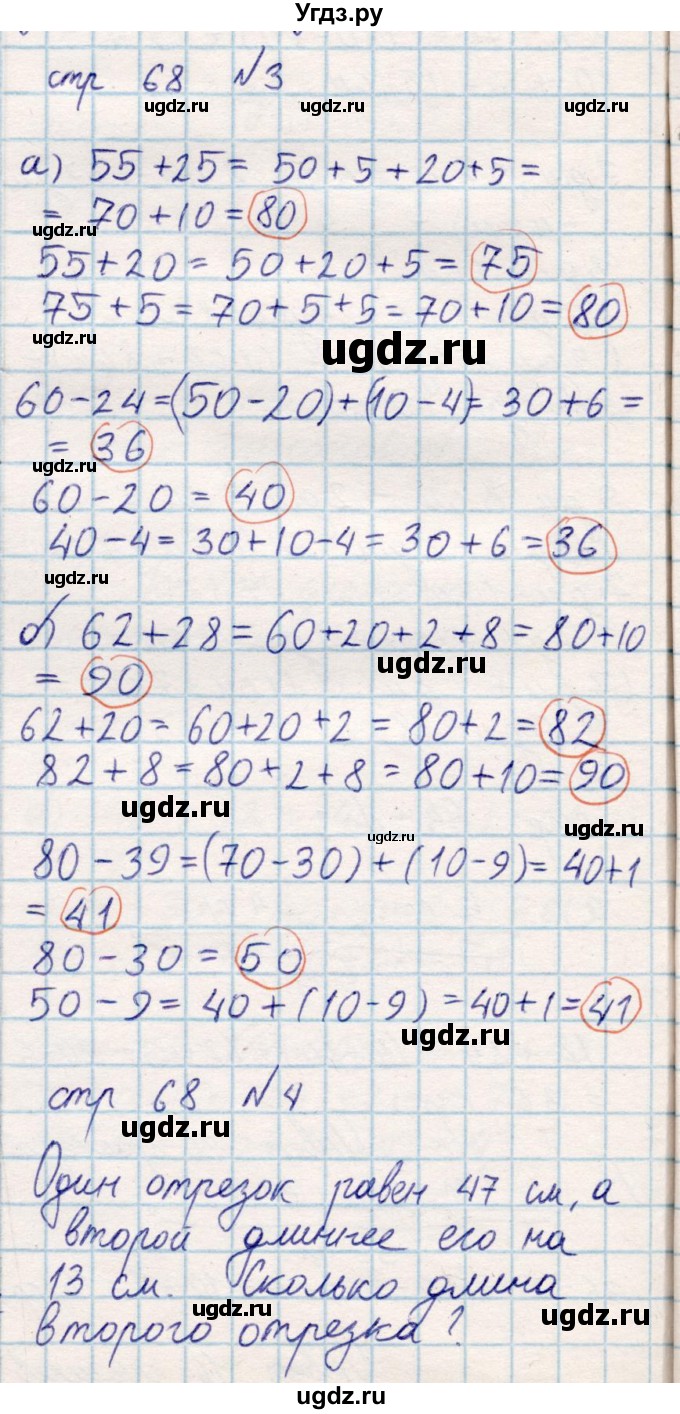 Угдз.ру
стр 68 №3
ugdz.ru ugdz.ru
а) 55+25= 50+5+20+5=
= 70+10=80
ugdz.ru
55+20=50+20+5=75
75+5=70+5+5=70+10=80
ugdz.ru ugdz.ru
60-24=(50-20)+(10-4)= 30+6=
= 36
ugdz.ru
60-20=40
40-4=30+10-4=30+6=36
ugdz.ru
б) 62+28=60+20+2+8=80+10
ugdz.ru
= 90
62+20=60+20+2=80+2=82
82+8=80+2+8=80+10=90
ugdz.ru
ugdz.ru ugdz.ru
80-39=(70-30)+(10-9)=40+1
= 41
80-30=50
50-9=40+(10-9)=40+1=41
ugdz.ru
стр 68 №4
ugdz.ru
Один отрезок равен 47 см, а
второй длиннее его на
13 см. Сколько длина
ugdz.ru ugdz.ru
второго отрезка?
ugdz.ru